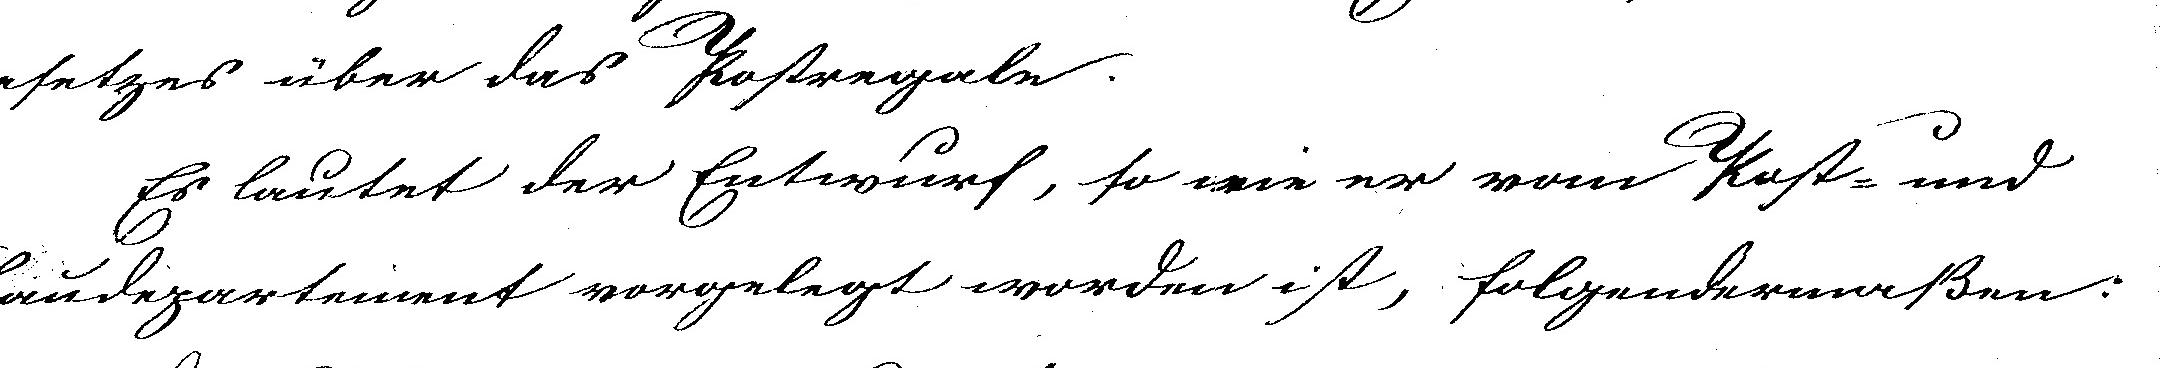 esetzes über das Postregale.
Es lautet der Entwurf, so wie er vom Post= und
Baudepartement vorgelegt worden ist, folgendermaßen: